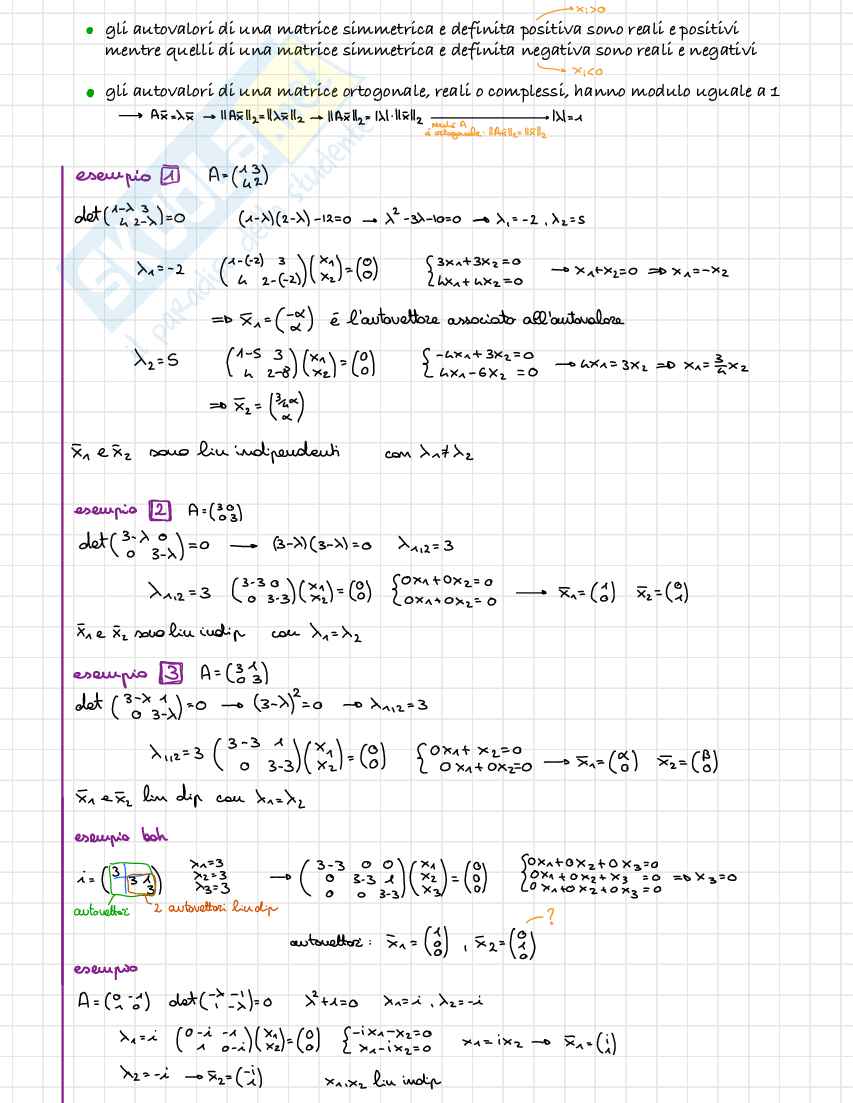 xᵢ>0
• gli autovalori di una matrice simmetrica e definita positiva sono reali e positivi
mentre quelli di una matrice simmetrica e definita negativa sono reali e negativi
xᵢ<0
• gli autovalori di una matrice ortogonale, reali o complessi, hanno modulo uguale a 1
→ Ax̄=λx̄ → ||Ax̄||₂=||λx̄||₂ → ||Ax̄||₂=|λ|·||x̄||₂ → |λ|=1
A
è ortogonale: ||Ax̄||₂=||x̄||₂
SKUOLA.net
il paradiso dello studente
esempio 1 A=(1 3 / 4 2)
det(1-λ 3 / 4 2-λ)=0 (1-λ)(2-λ)-12=0 → λ²-3λ-10=0 → λ₁=-2, λ₂=5
λ₁=-2 (1-(-2) 3 / 4 2-(-2))(x₁ / x₂)=(0 / 0) {3x₁+3x₂=0 / 4x₁+4x₂=0 → x₁+x₂=0 ⇒ x₁=-x₂
⇒ x̄₁=(-α / α) è l'autovettore associato all'autovalore
λ₂=5 (1-5 3 / 4 2-5)(x₁ / x₂)=(0 / 0) {-4x₁+3x₂=0 / 4x₁-6x₂=0 → 4x₁=3x₂ ⇒ x₁=3/4 x₂
⇒ x̄₂=(3/4α / α)
x̄₁ e x̄₂ sono lin indipendenti con λ₁≠λ₂
esempio 2 A=(3 0 / 0 3)
det(3-λ 0 / 0 3-λ)=0 → (3-λ)(3-λ)=0 λ₁,₂=3
λ₁,₂=3 (3-3 0 / 0 3-3)(x₁ / x₂)=(0 / 0) {0x₁+0x₂=0 / 0x₁+0x₂=0 → x̄₁=(1 / 0) x̄₂=(0 / 1)
x̄₁ e x̄₂ sono lin indip con λ₁=λ₂
esempio 3 A=(3 1 / 0 3)
det(3-λ 1 / 0 3-λ)=0 → (3-λ)²=0 → λ₁,₂=3
λ₁,₂=3 (3-3 1 / 0 3-3)(x₁ / x₂)=(0 / 0) {0x₁+x₂=0 / 0x₁+0x₂=0 → x̄₁=(α / 0) x̄₂=(β / 0)
x̄₁ e x̄₂ lin dip con λ₁=λ₂
esempio boh
i=(3 / 3 1 / 3) λ₁=3 λ₂=3 λ₃=3 → (3-3 0 0 / 0 3-3 1 / 0 0 3-3)(x₁ / x₂ / x₃)=(0 / 0 / 0) {0x₁+0x₂+0x₃=0 / 0x₁+0x₂+x₃=0 / 0x₁+0x₂+0x₃=0 ⇒ x₃=0
autovettor 2 autovettori lin dip
?
autovettori: x̄₁=(1 / 0 / 0), x̄₂=(0 / 1 / 0)
esempio
A=(0 -1 / 1 0) det(-λ -1 / 1 -λ)=0 λ²+1=0 λ₁=i, λ₂=-i
λ₁=i (0-i -1 / 1 0-i)(x₁ / x₂)=(0 / 0) {-ix₁-x₂=0 / x₁-ix₂=0 x₁=ix₂ → x̄₁=(i / 1)
λ₂=-i → x̄₂=(-i / 1) x₁,x₂ lin indip